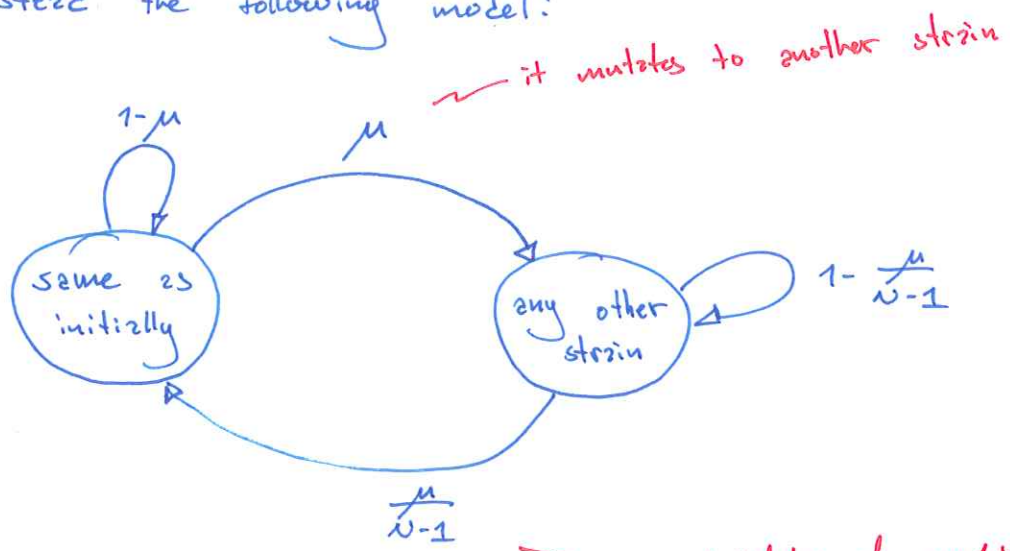 the following model:
it mutates to another strain
1-μ
μ
same as
initially
any other
strain
1- μ/N-1
μ/N-1